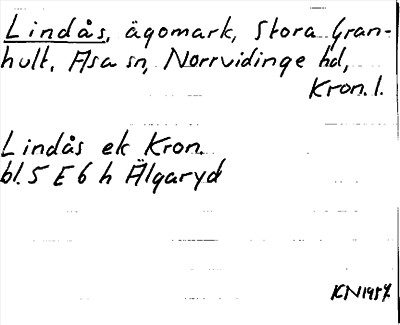 Lindås, ägomark, Stora Gran-
hult, Asa sn, Norrvidinge hd,
Kron. l.
Lindås ek Kron.
bl. 5 E 6 h Älgaryd
KN 1957